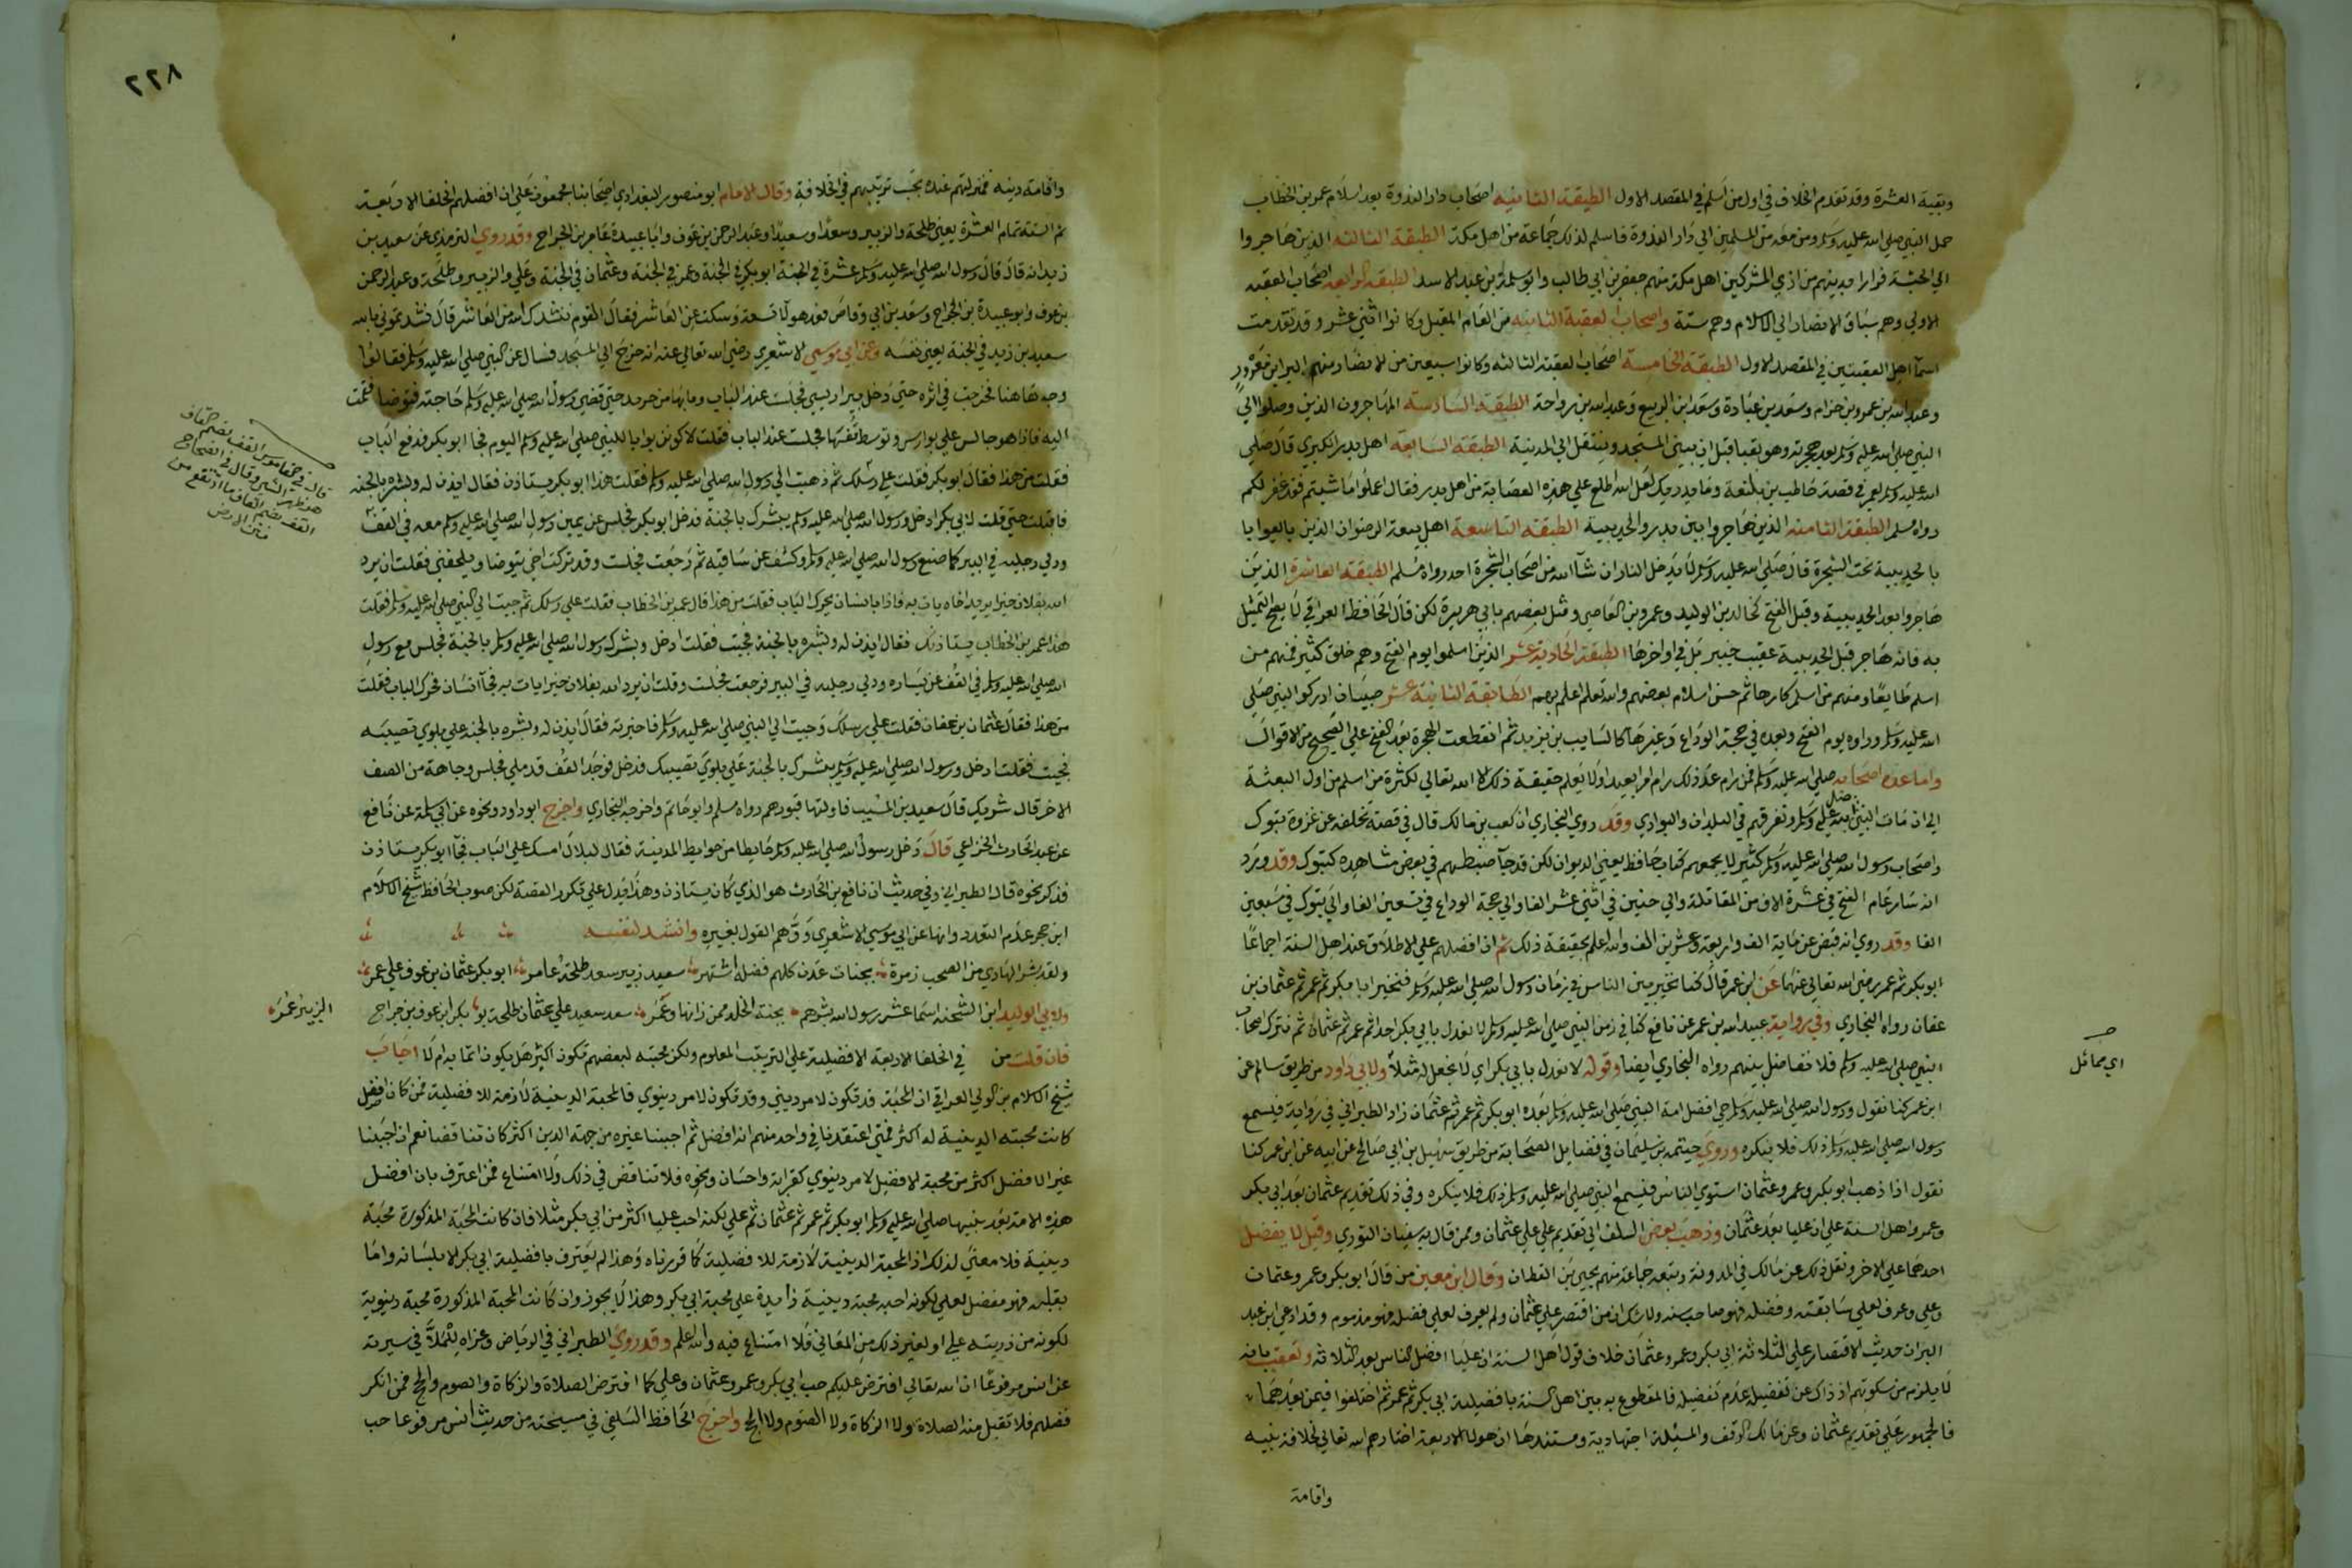 وبقية العشرة وقد تقدم الخلاف في اول من اسلم في المقصد الاول الطبقة الثانية اصحاب دار الندوة بعد اسلام عمر بن الخطاب
حمل النبي صلي الله عليه وسلم ومن معه من المسلمين الي دار الندوة فاسلم لذلك جماعة من اهل مكة الطبقة الثالثة الذين هاجروا
الي الحبشة فرارا بدينهم من اذي المشركين اهل مكة منهم جعفر بن ابي طالب وابو سلمة بن عبد الاسد الطبقة الرابعة اصحاب العقبة
الاولي وهم سباق الانصار الي الاسلام وهم ستة واصحاب العقبة الثانية من العام المقبل وكانوا اثني عشر وقد تقدمت
اسما اهل العقبتين في المقصد الاول الطبقة الخامسة اصحاب العقبة الثالثة وكانوا سبعين من الانصار منهم البرا بن معرور
وعبد الله بن عمرو بن حرام وسعد بن عبادة وسعد ابن الربيع وعبد الله بن رواحة الطبقة السادسة المهاجرون الذين وصلوا الي
النبي صلي الله عليه وسلم بعد هجرته وهو بقبا قبل ان يبني المسجد وينتقل الي المدينة الطبقة السابعة اهل بدر الكبري قال صلي
الله عليه وسلم لعمر في قصة حاطب بن بلتعة وما يدريك لعل الله اطلع علي هذه العصابة من اهل بدر فقال اعملوا ما شيتم فقد غفر لكم
رواه مسلم الطبقة الثامنة الذين هاجروا بين بدر والحديبية الطبقة التاسعة اهل بيعة الرضوان الذين بايعوا با
بالحديبية تحت الشجرة قال صلي الله عليه وسلم لا يدخل النار ان شا الله من اصحاب الشجرة احد رواه مسلم الطبقة العاشرة الذين
هاجروا بعد الحديبية وقبل الفتح كخالد بن الوليد وعمرو بن العاصي ومثل بعضهم بابي هريرة لكن قال الحافظ العراقي لا يصح التمثيل
به فانه هاجر قبل الحديبية عقب خيبر بل في اواخرها الطبقة الحادية عشر الذين اسلموا يوم الفتح وهم خلق كثير فمنهم من
اسلم طايعا ومنهم من اسلم كارها ثم حسن اسلام بعضهم والله تعلم اعلم بهم الطابقة الثانية عشر صبيان ادركوا النبي صلي
الله عليه وسلم وراوه يوم الفتح وبعده في حجة الوداع وغيرها كالسايب بن يزيد ثم انقطعت الهجرة بعد الفتح علي الصحيح من الاقوال
واما عدة اصحابه صلي الله عليه وسلم فمن رام عد ذلك رام امرا بعيدا ولا يعلم حقيقة ذلك الا الله تعالي لكثرة من اسلم من اول البعثة
الي ان مات النبي صلي الله عليه وسلم وتفرقهم في البلدان والبوادي وقد روي البخاري ان كعب بن مالك قال في قصة تخلفه عن غزوة تبوك
واصحاب رسول الله صلي الله عليه وسلم كثير لا يجمعهم كتاب حافظ يعني الديوان لكن قد جآ ضبطهم في بعض مشاهده كتبوك وقد ورد
انه سار عام الفتح في عشرة الاف من المقاتلة والي حنين في اثني عشر الفا والي حجة الوداع في تسعين الفا والي تبوك في سبعين
الفا وقد روي انه قبض عن ماية الف واربعة وعشرين الف والله اعلم بحقيقة ذلك ثم ان افضلهم علي الاطلاق عند اهل السنة اجماعا
ابو بكر ثم عمر رضي الله تعالي عنهما عن ابن عمر قال كنا نخير بين الناس في زمان رسول الله صلي الله عليه وسلم فنخير ابا بكر ثم عمر ثم عثمان بن
عفان رواه البخاري وفي رواية عبيد الله بن عمر عن نافع كنا في زمن النبي صلي الله عليه وسلم لا نعدل بابي بكر احدا ثم عمر ثم عثمان ثم نترك اصحاب
النبي صلي الله عليه وسلم فلا نفاضل بينهم رواه البخاري ايضا وقوله لا نعدل بابي بكر اي لا نجعل له مثلا ولابي داود من طريق سالم عن
اي مماثل
ابن عمر كنا نقول ورسول الله صلي الله عليه وسلم حي افضل امة النبي صلي الله عليه وسلم بعده ابو بكر ثم عمر ثم عثمان زاد الطبراني في رواية فيسمع
رسول الله صلي الله عليه وسلم ذلك فلا ينكره وروي خيثمة بن سليمان في فضايل الصحابة من طريق سهيل بن ابي صالح عن ابيه عن ابن عمر كنا
نقول اذا ذهب ابو بكر وعمر وعثمان استوي الناس فيسمع النبي صلي الله عليه وسلم ذلك فلا ينكره وفي ذلك تقديم عثمان بعد ابي بكر
وعمر واهل السنة علي ان عليا بعد عثمان وذهب بعض السلف الي تقديم علي علي عثمان وممن قال به سفيان الثوري وقيل لا يفضل
احدهما علي الاخر ونقل ذلك عن مالك في المدونة وتبعه جماعة منهم يحيي بن القطان وقال ابن معين من قال ابو بكر وعمر وعثمان
وعلي وعرف لعلي سابقته وفضله فهو صاحب سنة ولا شك ان من اقتصر علي عثمان ولم يعرف لعلي فضله فهو مذموم وقد ادعي ابن عبد
البر ان حديث الاقتصار علي الثلاثة ابي بكر وعمر وعثمان خلاف قول اهل السنة ان عليا افضل الناس بعد الثلاثة وتعقب بانه
لا يلزم من سكوتهم اذ ذاك عن تفضيله عدم تفضيله فالمقطوع به بين اهل السنة بافضيلة ابي بكر ثم عمر ثم اختلفوا فيمن بعدهما
فالجمهور علي تقديم عثمان وعن مالك الوقف والمسئلة اجتهادية ومستندها ان هولا الاربعة اختارهم الله تعالي لخلافة نبيه
واقامة
٢٢٨
واقامة دينه فمنزلتهم عنده بحسب ترتيبهم في الخلافة وقال الامام ابو منصور البغدادي اصحابنا مجمعون علي ان افضلهم الخلفا الاربعة
ثم الستة تمام العشرة يعني طلحة والزبير وسعدا وسعيدا وعبد الرحمن بن عوف وابا عبيدة عامر بن الجراح وقد روي الترمذي عن سعيد بن
زيد انه قال قال رسول الله صلي الله عليه وسلم عشرة في الجنة ابو بكر في الجنة وعمر في الجنة وعثمان في الجنة وعلي والزبير وطلحة وعبد الرحمن
بن عوف وابو عبيدة بن الجراح وسعد بن ابي وقاص فعد هولا تسعة وسكت عن العاشر فقال القوم ننشدك الله من العاشر قال نشدتموني بالله
سعيد بن زيد في الجنة يعني نفسه وعن ابي موسي الاشعري رضي الله تعالي عنه انه خرج الي المسجد فسال عن النبي صلي الله عليه وسلم فقالوا
وجه هاهنا فخرجت في اثره حتي دخل بير اريس فجلست عند الباب وبابها من جريد حتي قضي رسول الله صلي الله عليه وسلم حاجته فتوضا فقمت
اليه فاذا هو جالس علي بير اريس وتوسط قفها فجلست عند الباب فقلت لاكونن بوابا للنبي صلي الله عليه وسلم اليوم فجا ابو بكر فدفع الباب
فقلت من هذا فقال ابو بكر فقلت علي رسلك ثم ذهبت الي رسول الله صلي الله عليه وسلم فقلت هذا ابو بكر يستاذن فقال ايذن له وبشره بالجنة
فاقبلت حتي قلت لابي بكر ادخل ورسول الله صلي الله عليه وسلم يبشرك بالجنة فدخل ابو بكر فجلس عن يمين رسول الله صلي الله عليه وسلم معه في القف
قال في القاموس القف بضم القاف
ودلي رجليه في البير كما صنع رسول الله صلي الله عليه وسلم وكشف عن ساقيه ثم رجعت فجلست وقد تركت اخي يتوضا ويلحقني فقلت ان يرد
الله بفلان خيرا يريد اخاه يات به فاذا بانسان يحرك الباب فقلت من هذا قال عمر بن الخطاب فقلت علي رسلك ثم جيت الي النبي صلي الله عليه وسلم فقلت
هذا عمر بن الخطاب يستاذنك فقال ايذن له وبشره بالجنة فجيت فقلت ادخل وبشرك رسول الله صلي الله عليه وسلم بالجنة فجلس مع رسول
الله صلي الله عليه وسلم في القف عن يساره ودلي رجليه في البير فرجعت فجلست وقلت ان يرد الله بفلان خيرا يات به فجآ انسان فحرك الباب فقلت
من هذا فقال عثمان بن عفان فقلت علي رسلك وجيت الي النبي صلي الله عليه وسلم فاخبرته فقال ايذن له وبشره بالجنة علي بلوي تصيبه
فجيت فقلت ادخل ورسول الله صلي الله عليه وسلم يبشرك بالجنة علي بلوي تصيبك فدخل فوجد القف قد ملي فجلس وجاهه من الصف
الاخر قال شريك قال سعيد بن المسيب فاولتها قبورهم رواه مسلم وابو حاتم واخرجه البخاري واخرج ابو داود ونحوه عن ابي سلمة عن نافع
عن عبد الحارث الخزاعي قال دخل رسول الله صلي الله عليه وسلم حايطا من حوايط المدينة فقال لبلال امسك علي الباب فجآ ابو بكر يستاذن
فذكر نحوه قال الطبراني وفي حديث ان نافع بن الحارث هو الذي كان يستاذن وهذا يدل علي تكرر القصة لكن صوب الحافظ شيخ الاسلام
ابن حجر عدم التعدد وانها عن ابي موسي الاشعري ووهم القول بغيره وانشد لنفسه
ولقد بشر الهادي من الصحب زمرة بجنات عدن كلهم فضله اشتهر سعيد زبير سعد طلحة عامر ابو بكر عثمان بن عوف علي عمر
ولابي الوليد ابن الشحنة اسما عشر رسول الله بشرهم بجنة الخلد ممن زانها وعمر سعد سعيد علي عثمان طلحة بو بكر ابن عوف بن جراح
الزبير عمر
فان قلت من في الخلفا الاربعة الافضلية علي الترتيب المعلوم ولكن محبته لبعضهم تكون اكثر هل يكون اثما به ام لا اجاب
شيخ الاسلام بن الولي العراقي ان المحبة قد تكون لامر ديني وقد تكون لامر دنيوي فالمحبة الدينية لازمة للافضلية فمن كان افضل
كانت محبته الدينية له اكثر فمتي اعتقدنا في واحد منهم انه افضل ثم احببنا غيره من جهة الدين اكثر كان تناقضا نعم ان احببنا
غير الافضل اكثر من محبة الافضل لامر دنيوي كقرابة واحسان ونحوه فلا تناقض في ذلك ولا امتناع فمن اعترف بان افضل
هذه الامة بعد نبيها صلي الله عليه وسلم ابو بكر ثم عمر ثم عثمان ثم علي لكنه احب عليا اكثر من ابي بكر مثلا فان كانت المحبة المذكورة محبة
دينية فلا معني لذلك اذ المحبة الدينية لازمة للافضلية كما قررناه وهذا لم يعترف بافضلية ابي بكر الا بلسانه واما
بقلبه فهو مفضل لعلي لكونه احبه محبة دينية زايدة علي محبة ابي بكر وهذا لا يجوز وان كانت المحبة المذكورة محبة دنيوية
لكونه من ذرية علي او لغير ذلك من المعاني فلا امتناع فيه والله اعلم وقد روي الطبراني في الرياض وعزاه للملا في سيرته
عن انس مرفوعا ان الله تعالي افترض عليكم حب ابي بكر وعمر وعثمان وعلي كما افترض الصلاة والزكاة والصوم والحج فمن انكر
فضلهم فلا تقبل منه الصلاة ولا الزكاة ولا الصوم ولا الحج واخرج الحافظ السلفي في مسيخته من حديث انس مرفوعا حب